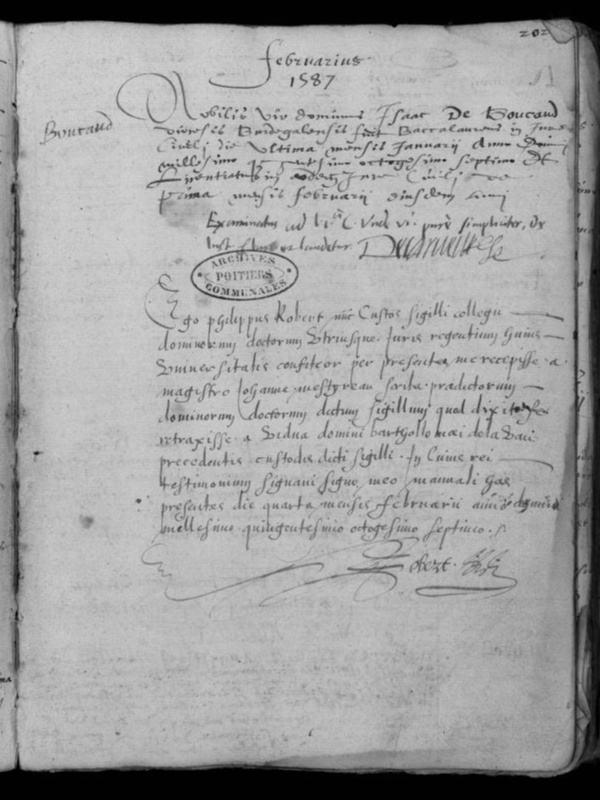 202
Februarius
1587
Boucaud
Nobilis vir dominus Isaac De Boucaud
diocesis Burdegalensis fuit Baccalaureus in Jure
Civili die ultima mensis Januarii Anno Domini
millesimo quingentesimo octogesimo septimo Et
Licentiatus in eodem Jure Civili die
prima mensis februarii eiusdem anni
Examinatus ad L. C. Unde vi. pure simpliciter, et
ARCHIVES
POITIERS
COMMUNALES
Ego philippus Robert nunc Custos sigilli collegii
dominorum doctorum Utriusque Juris regentium huius
Universitatis confiteor per presentes me recepisse a
magistro Johanne mestgreau scriba predictorum
dominorum doctorum dictum sigillum quod dixit
retraxisse a Vidua domini bartholomaei dela
precedentis custodis dicti sigilli. In Cuius rei
testimonium signavi signo meo manuali has
presentes die quarta mensis februarii anno domini
millesimo quingentesimo octogesimo septimo.
Robert